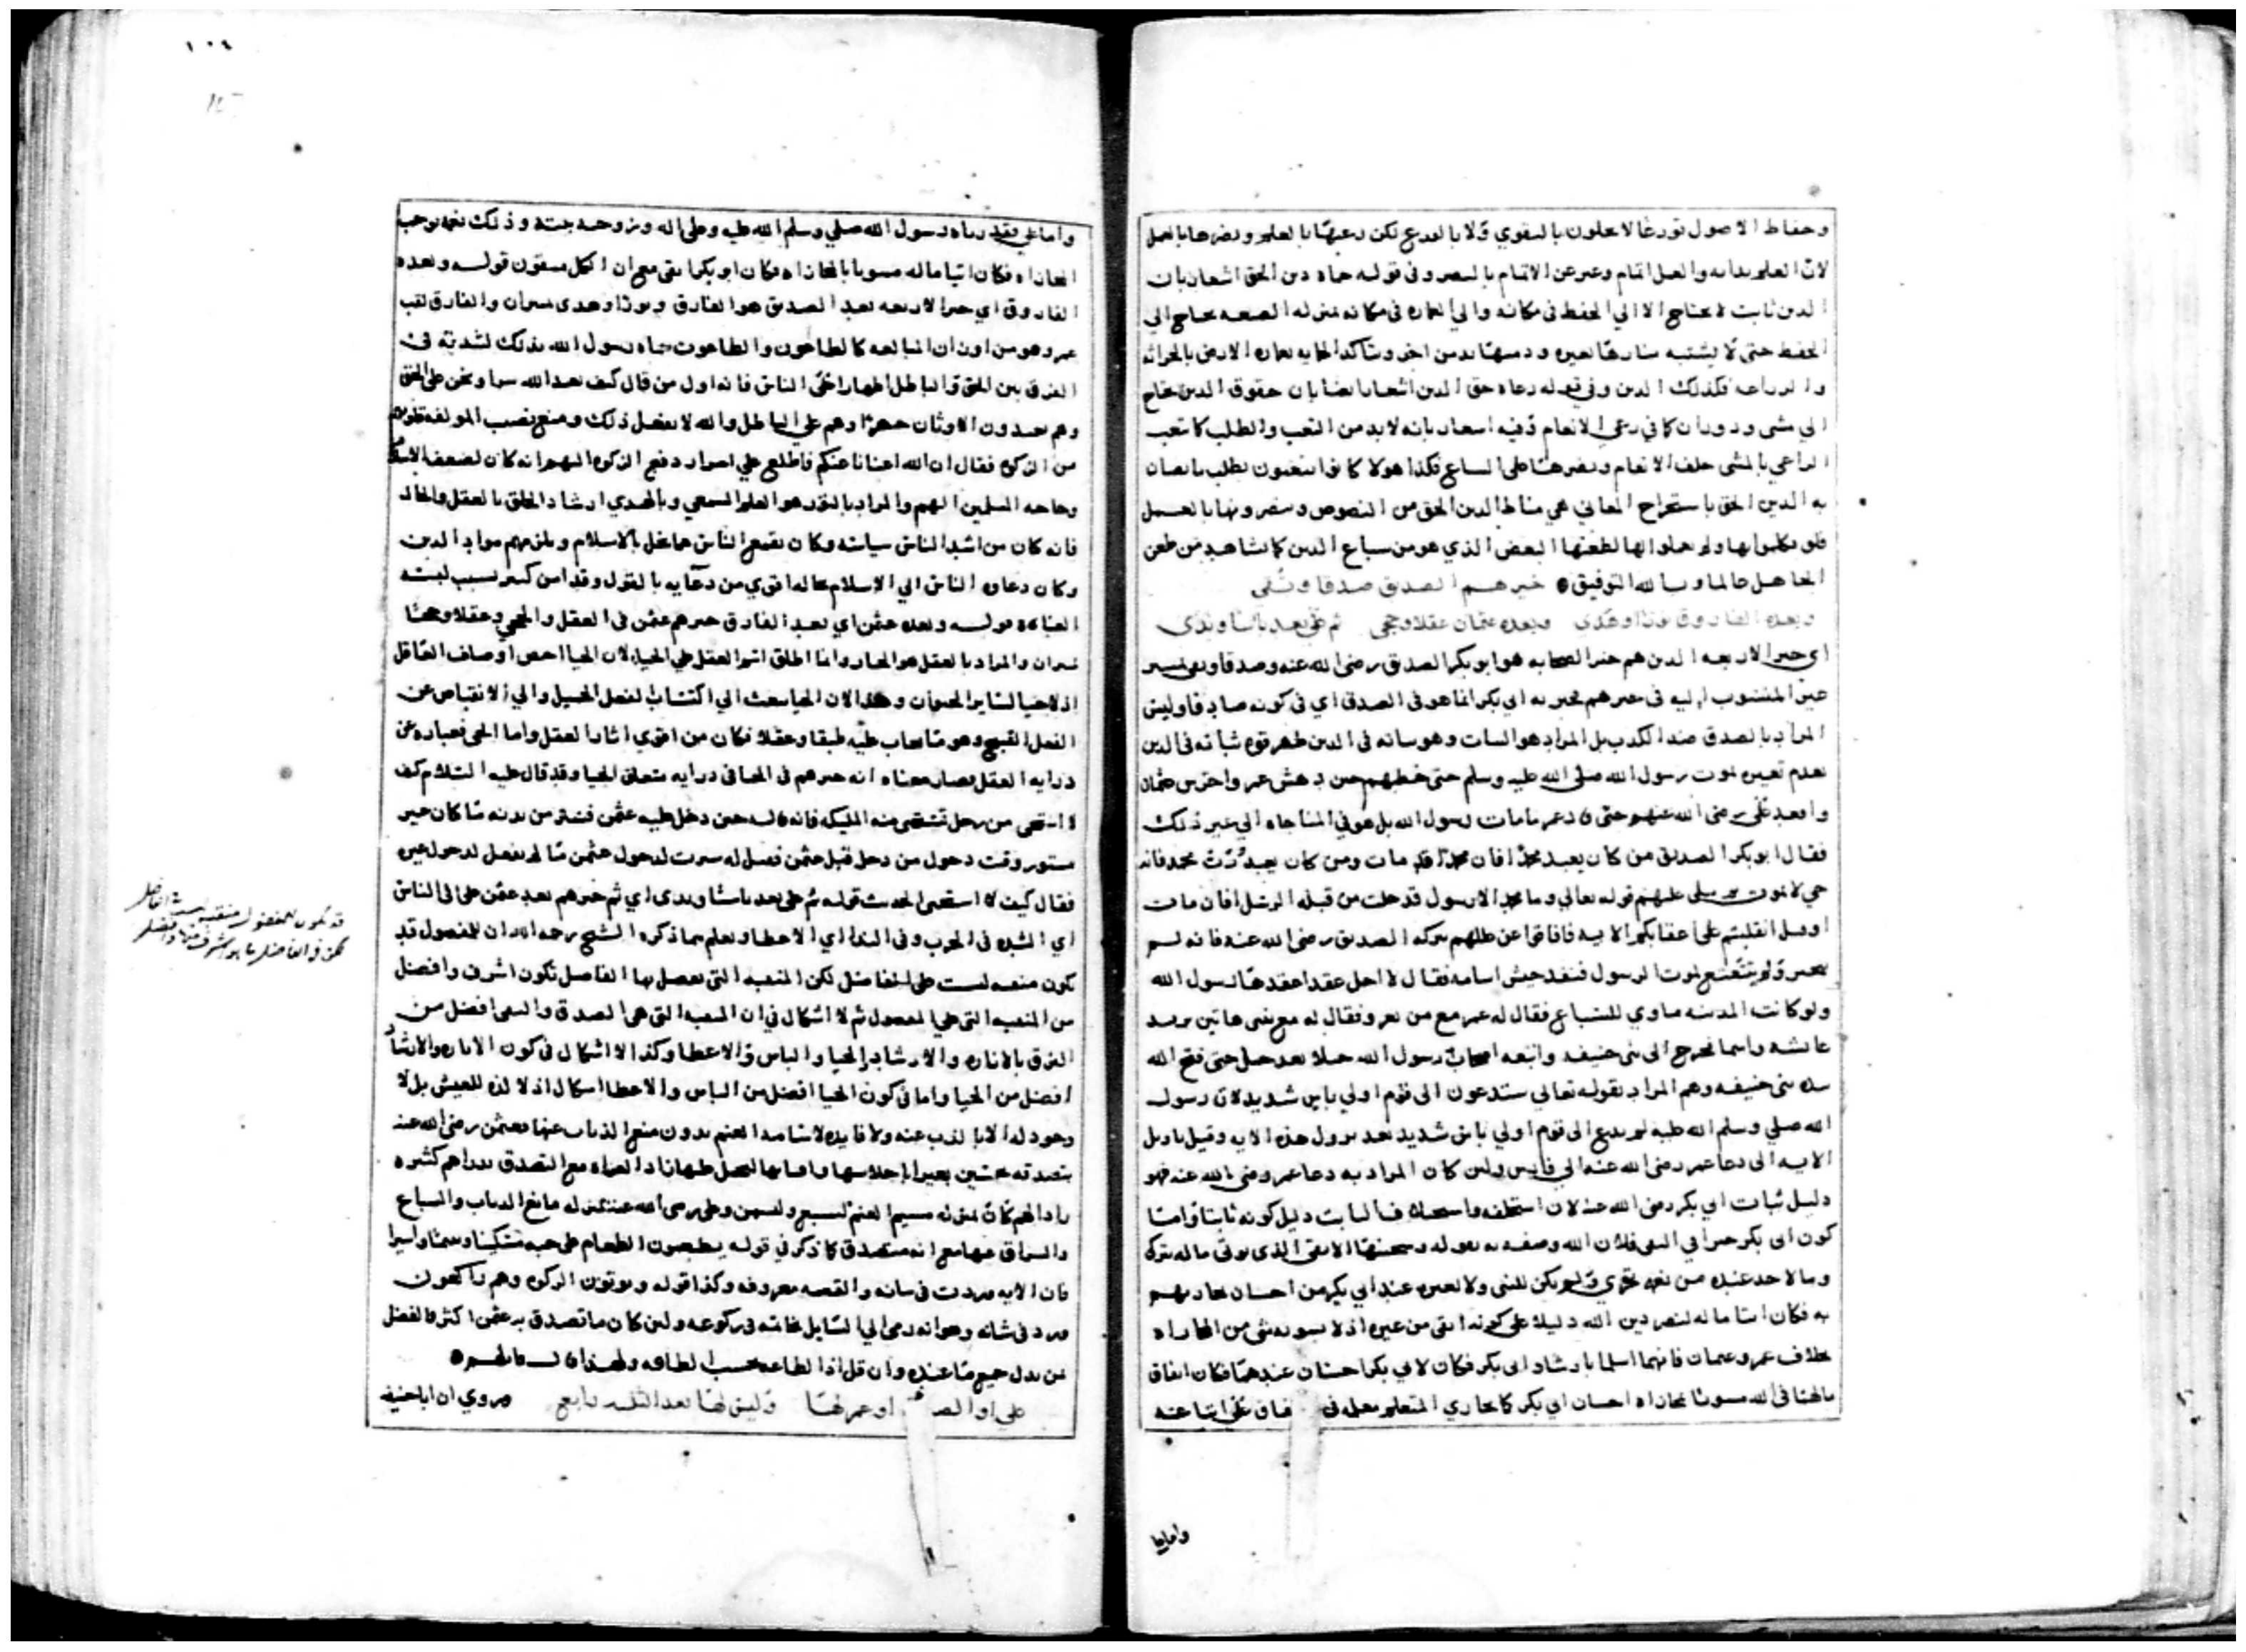 وحفاظ الاصول تورعا لا يعلون بالتقوي ولا بالورع لكن رعيها بالعلم ونصرها بالعمل
لان العلم بدايه والعمل اتمام وعبر عن الاتمام بالنصر وفي قوله حماه دين الحق اشعار بان
الدين ثابت لا يحتاج الا الي الحفظ في مكانه والي العماره في مكانه بمنزله الضيعه يحتاج الي
الحفظ حتى لا يشتبه منارها بغيره
والزراعه فكذلك الدين وفي قوله رعاه حق الدين اشعار ايضا بان حقوق الدين تحتاج
الي مشي ودوران كما في رعي الانعام وفيه اشعار بانه لا بد من التعب والطلب كما تعب
الراعي بالمشي خلف الانعام ونصرها على السباع فكذا هولا كانوا يتعبون بطلب ما يصان
به الدين الحق باستخراج المعاني هي مناط الدين الحق من النصوص ونصرونها بالعمل
الذي هو من سباع الدين كما نشاهد من طعن
الجاهل عالما وبالله التوفيق خيرهم الصديق صدقا وتقى
وبعده الفاروق نورا وهدى وبعده عثمان عقلا وحجى ثم علي بعد باسا وندى
اي خير الاربعه الذين هم خير الصحابه هو ابو بكر الصديق رضي الله عنه وصدقا وتقى تمييز
عن المنسوب اليه في خيرهم اي بكر انما هو في الصدق اي في كونه صادقا وليس
المراد بالصدق ضد الكذب بل المراد هو الثبات وهو بيانه في الدين ظهر قوه ثباته في الدين
بعدم تغيره بموت رسول الله صلى الله عليه وسلم حتى خطبهم حين دهش عمر واخرس عثمان
واقعد علي رضي الله عنهم حتى قال عمر ما مات رسول الله بل هو في المناجاه الي غير ذلك
فقال ابو بكر الصديق من كان يعبد محمدا فان محمدا قد مات ومن كان يعبد رب محمد فانه
حي لا يموت ثم تلى عليهم قوله تعالي وما محمد الا رسول قد خلت من قبله الرسل افان مات
او قتل انقلبتم على اعقابكم الايه فافاقوا الصديق رضي الله عنه فانه لم
لموت الرسول فنفذ جيش اسامه فقال لا احل عقدا عقدها رسول الله
ولو كانت المدينه ماوي للسباع فقال له عمر مع من
الى بني حنيفه واتبعه اصحاب رسول الله حتى فتح الله
بني حنيفه وهم المراد بقوله تعالي ستدعون الى قوم اولي باس شديد لان رسول
الله صلي وسلم الله عليه لم يدع الى قوم اولي باس شديد بعد نزول هذه الايه وقيل تاويل
الايه الى دعا عمر رضي الله عنه الي فارس ولين كان المراد به دعا عمر رضي الله عنه فهو
دليل ثبات ابي بكر رضي الله عنه لان استخلفه دليل كونه ثابتا واما
كون ابي بكر خيرا في التقى فلان الله وصفه به بقوله وسيجنبها الاتقى الذي يوتي ماله يتزكى
وما لاحد عنده من نعمه تجزي ولم يكن للنبي ولا لغيره عند ابي بكر من احسان يجازيهم
به فكان ايتا ماله لنصر دين الله دليلا على كونه اتقى من غيره اذ لا يشوبه شي من المجازاه
بخلاف عمر وعثمان فانهما اسلما بارشاد ابي بكر فكان لابي بكر احسان عندهما فكان انفاق
مالهما في الله مشوبا بمجازاه احسان ابي بكر كما يجازي المتعلم معلمه
واما علي
واما علي فقد رباه رسول الله صلي وسلم الله عليه وعلى اله وزوجه بنته وذلك نعمه توجب
المجازاه فكان ايتا ماله مشوبا بالمجازاه فكان ابو بكر اتقى مع ان الكل متقون قوله وبعده
الفاروق اي خير الاربعه بعد الصديق هو الفارق ونورا وهدى تمييزان والفارق لقب
عمر وهو من اوزان المبالغه كالطاحون والطاعون سماه رسول الله بذلك لشدته في
الفرق بين الحق والباطل اظهارا فانه اول من قال كيف نعبد الله سرا ونحن على الحق
وهم يعبدون الاوثان جهرا وهم علي الباطل والله لا نفعل ذلك ومنع نصيب المولفه قلوبهم
من الزكوه فقال ان الله اغنانا عنكم فاطلع علي اسرار دفع الزكوه اليهم انه كان لضعف الاسلام
وحاجه المسلمين اليهم والمراد بالنور هو العلم السمعي وبالهدي ارشاد الخلق بالعقل والحال
فانه كان من اشد الناس سياسه وكان يقمع الناس عما يخل بالاسلام ويلزمهم موارد الدين
وكان دعاه الناس الي الاسلام بحاله اقوي من دعايه بالقول وقد امن كثير بسبب لبسه
العباه قوله وبعده عثمن اي بعد الفارق خيرهم عثمن في العقل والحجى وعقلا وحجى
تمييزان والمراد بالعقل هو الحيا وانما اطلق اسم العقل على الحيا لان الحيا اخص اوصاف العاقل
اذ لا حيا لساير الحيوان وهذا لان الحيا يبعث الي اكتساب الفعل الجميل والي الانقباض عن
الفعل القبيح وهو ما يعاب عليه طبعا وعقلا فكان من اقوي اثار العقل واما الحجى فعباره عن
درايه العقل فصار معناه انه خيرهم في المعاني درايه تتعلق بالحيا وقد قال عليه السلام كيف
لا استحى من رجل تستحي منه المليكه قاله حين دخل عليه عثمن فستر من بدنه ما كان غير
مستور وقت دخول من دخل قبل عثمن فقيل له سترت لدخول عثمن ما لم تفعل لدخول غيره
فقال كيف لا استحى الحديث قوله ثم علي بعد باسا وندى اي ثم خيرهم بعد عثمن علي في الباس
اي الشده في الحرب وفي الندا اي الاعطا وتعلم مما ذكره الشيخ رحمه الله ان للمفضول قد
تكون منقبه ليست على الفاضل لكن المنقبه التي يفضل بها الفاضل تكون اشرف وافضل
من المنقبه التي هي للمفضول ثم لا اشكال في ان المنقبه التي هي الصدق والتقى افضل من
الفرق بالاناره والارشاد والحيا والباس والاعطا وكذا لا اشكال في كون الاناره والارشاد
افضل من الحيا واما في كون الحيا افضل من الباس والاعطا اشكال اذ لا لذه للعيش بل لا
وجود له الا بالذب عنه ولا فايده لاسامه الغنم بدون منع الذياب عنها فعثمن رضي الله عنه
بتصدقه بخمسين بعيرا باحلاسها واقتابها مع التصدق بدراهم كثيره
كان بمنزله مسيم الغنم لتشبع وتسمن وعلي رضي الله عنه بمنزله مانع الذياب والسباع
والسراق عنها مع انه متصدق كما ذكر في قوله يطعمون الطعام على حبه مسكينا ويتيما واسيرا
فان الايه وردت في شانه والقصه معروفه وكذا قوله ويوتون الزكوه وهم راكعون
ورد في شانه وهو انه رمى الي السايل خاتمه في ركوعه ولين كان ما تصدق به عثمن اكثر فالفضل
من بذل جميع ما عنده وان قل اذ الطاعه بحسب الطاقه
وليس لها بعد الثلث رابع وروي ان ابا حنيفه
قد تكون للمفضول منقبه ليست لفاضل